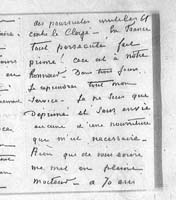 des poursuites inutiles et
contre le Clergé. La France
tout persécuté fait
prime! ceci est à notre
honneur. Dans trois jours
je reprendrai tout mon
service. Je ne suis que
déprimé et sans envie
aucune d'une nourriture
qui m'est nécessaire.
Rien que de vous écrire
me met en pleine
moiteur. a 70 ans